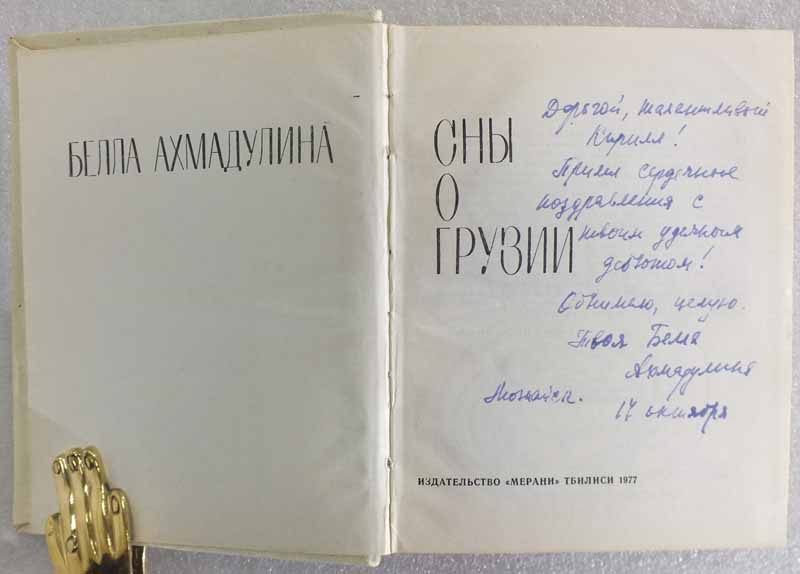 БЕЛЛА АХМАДУЛИНА
СНЫ
О
ГРУЗИИ
Дорогой, талантливый
Кирилл!
Прими сердечные
поздравления с
твоим удачным
дебютом!
Обнимаю, целую.
Твоя Белла
Ахмадулина
Можайск. 17 октября
ИЗДАТЕЛЬСТВО «МЕРАНИ» ТБИЛИСИ 1977